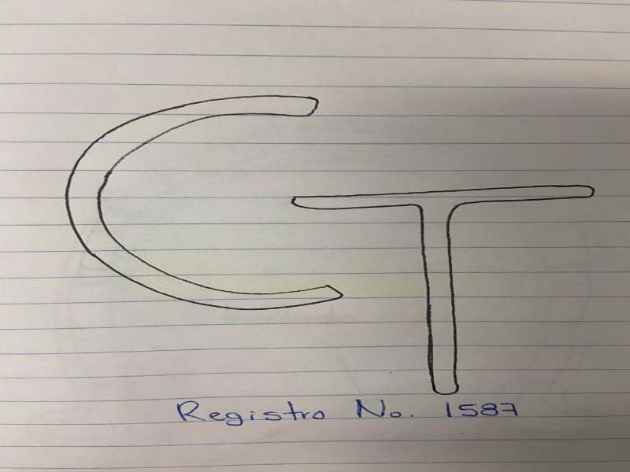 CT
Registro No. 1587